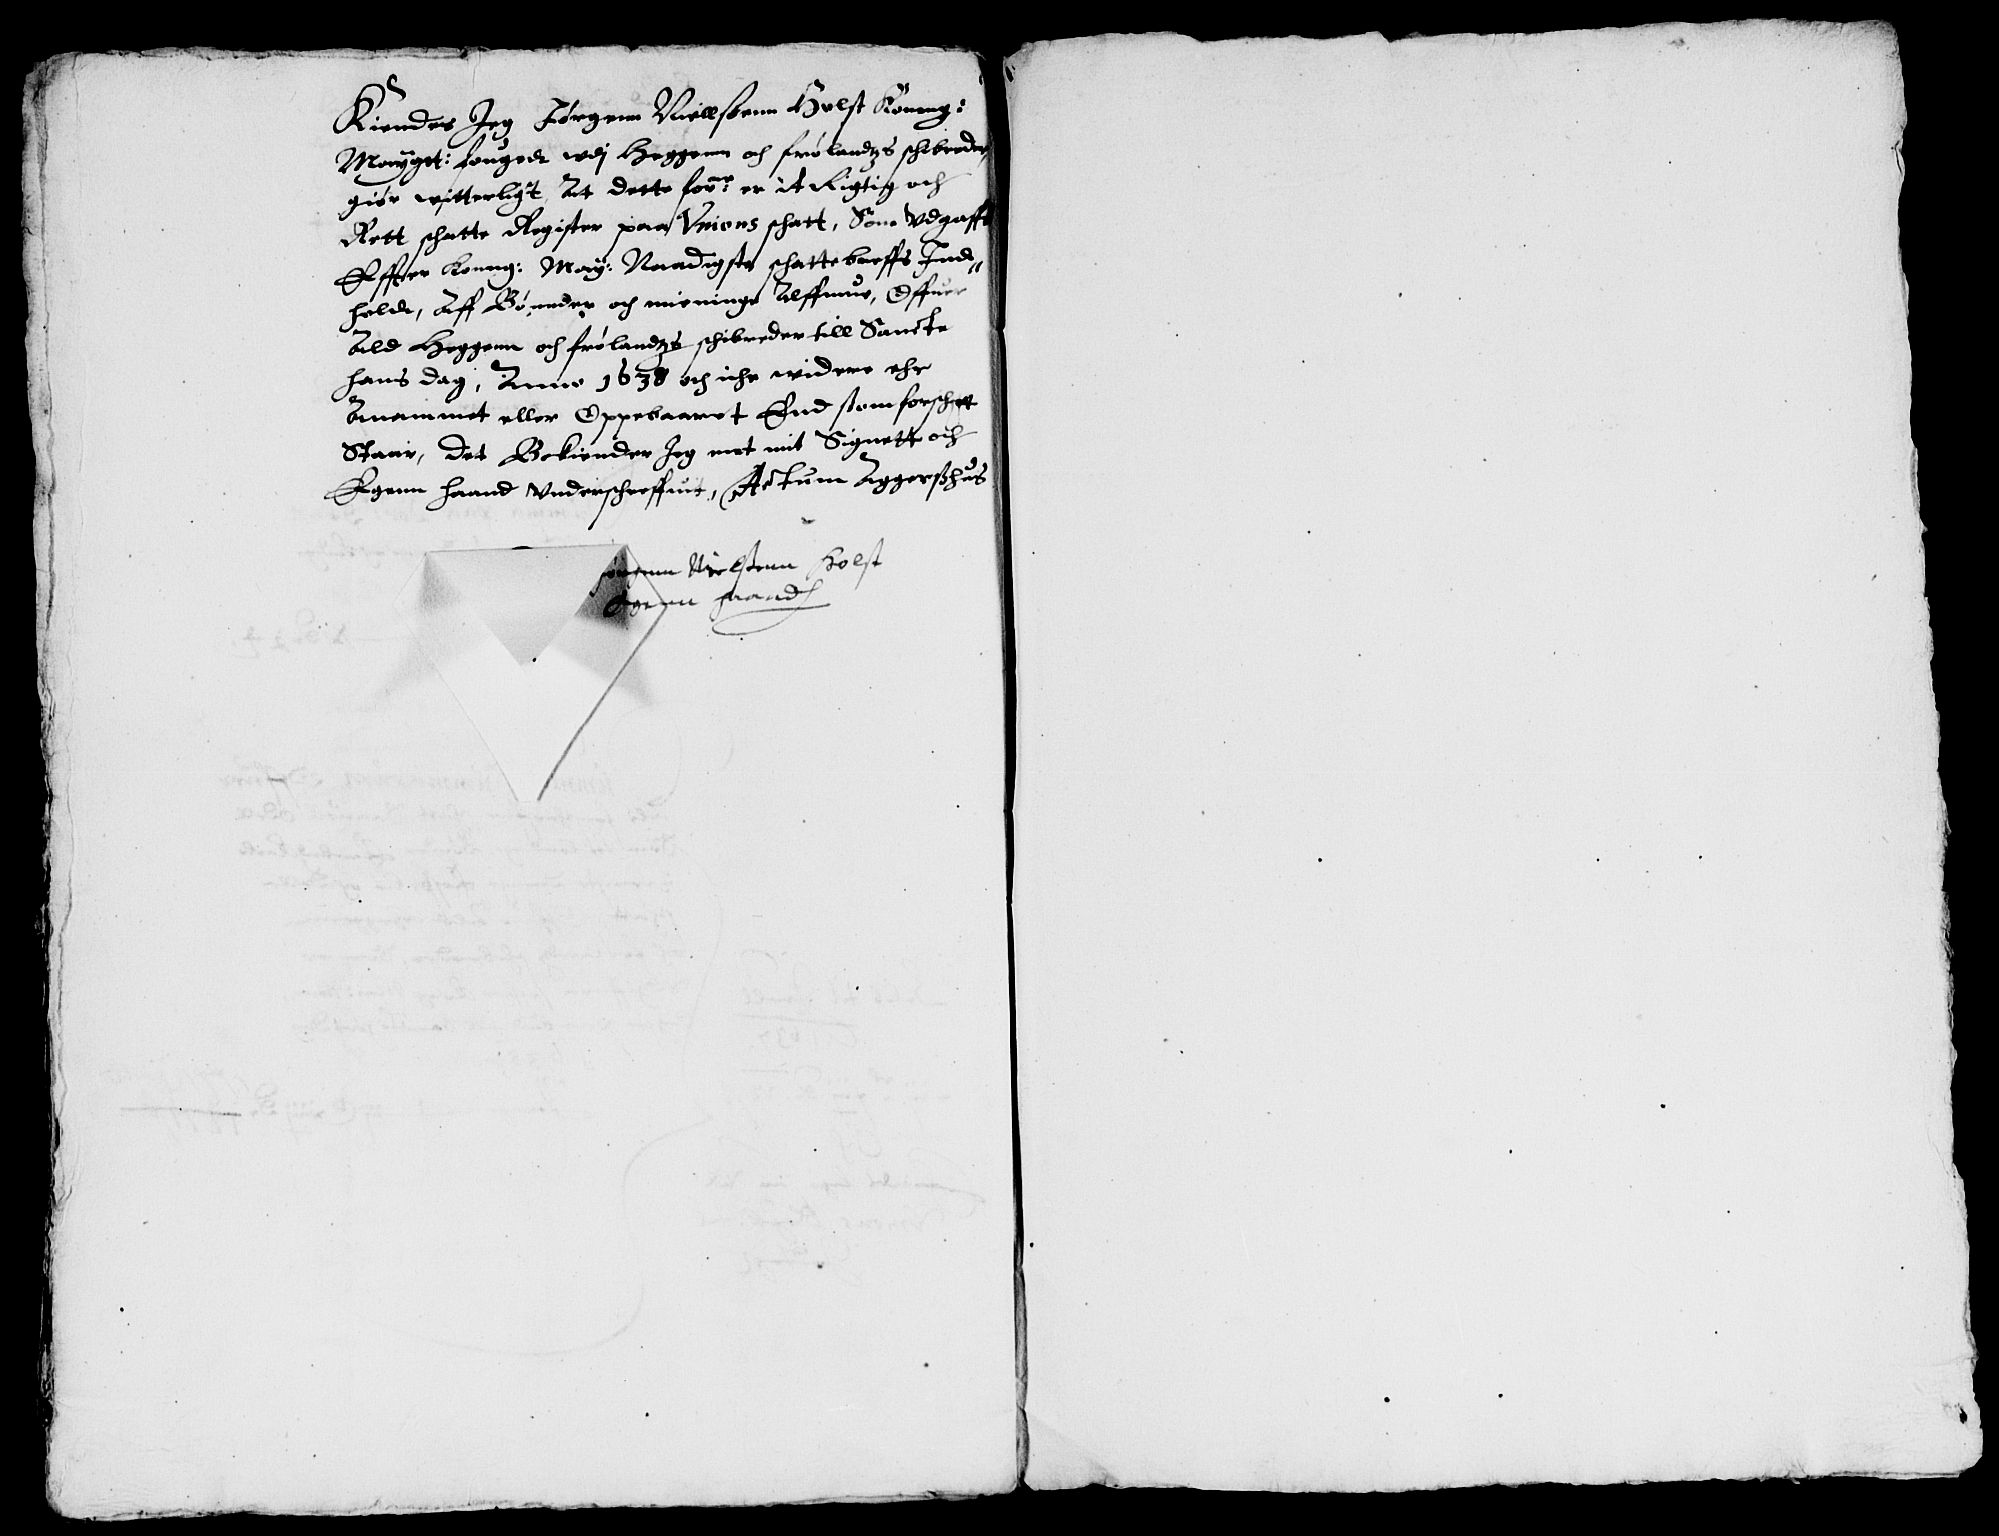 Kiendes Jeg Jørgenn Niellssenn Holst Konng:
Mayget: fougedt vdj Heggenn och frølandtzs schibreder,
giør witterligt At dette for.ne: er it Rigtig och
Rett schatte Register paa Vnions schatt, Som Vdgafft
Effter Konng: May: Naadigste schattebreffs Ind„
hold, Aff Bønnder och menninge Allffmue, Offuer
Ald Heggenn och frølandtzs schibreder till Sancte
hans dag, Anno 1638 och iche widere ehr
Anammet eller Oppebaaret End som forschrt
Staar, det Bekiender Jeg met mit Signett och
Egenn haand Vnderschreffuit, Actum Aggersshus
Jørgenn Nielssenn Holst
Egenn haand